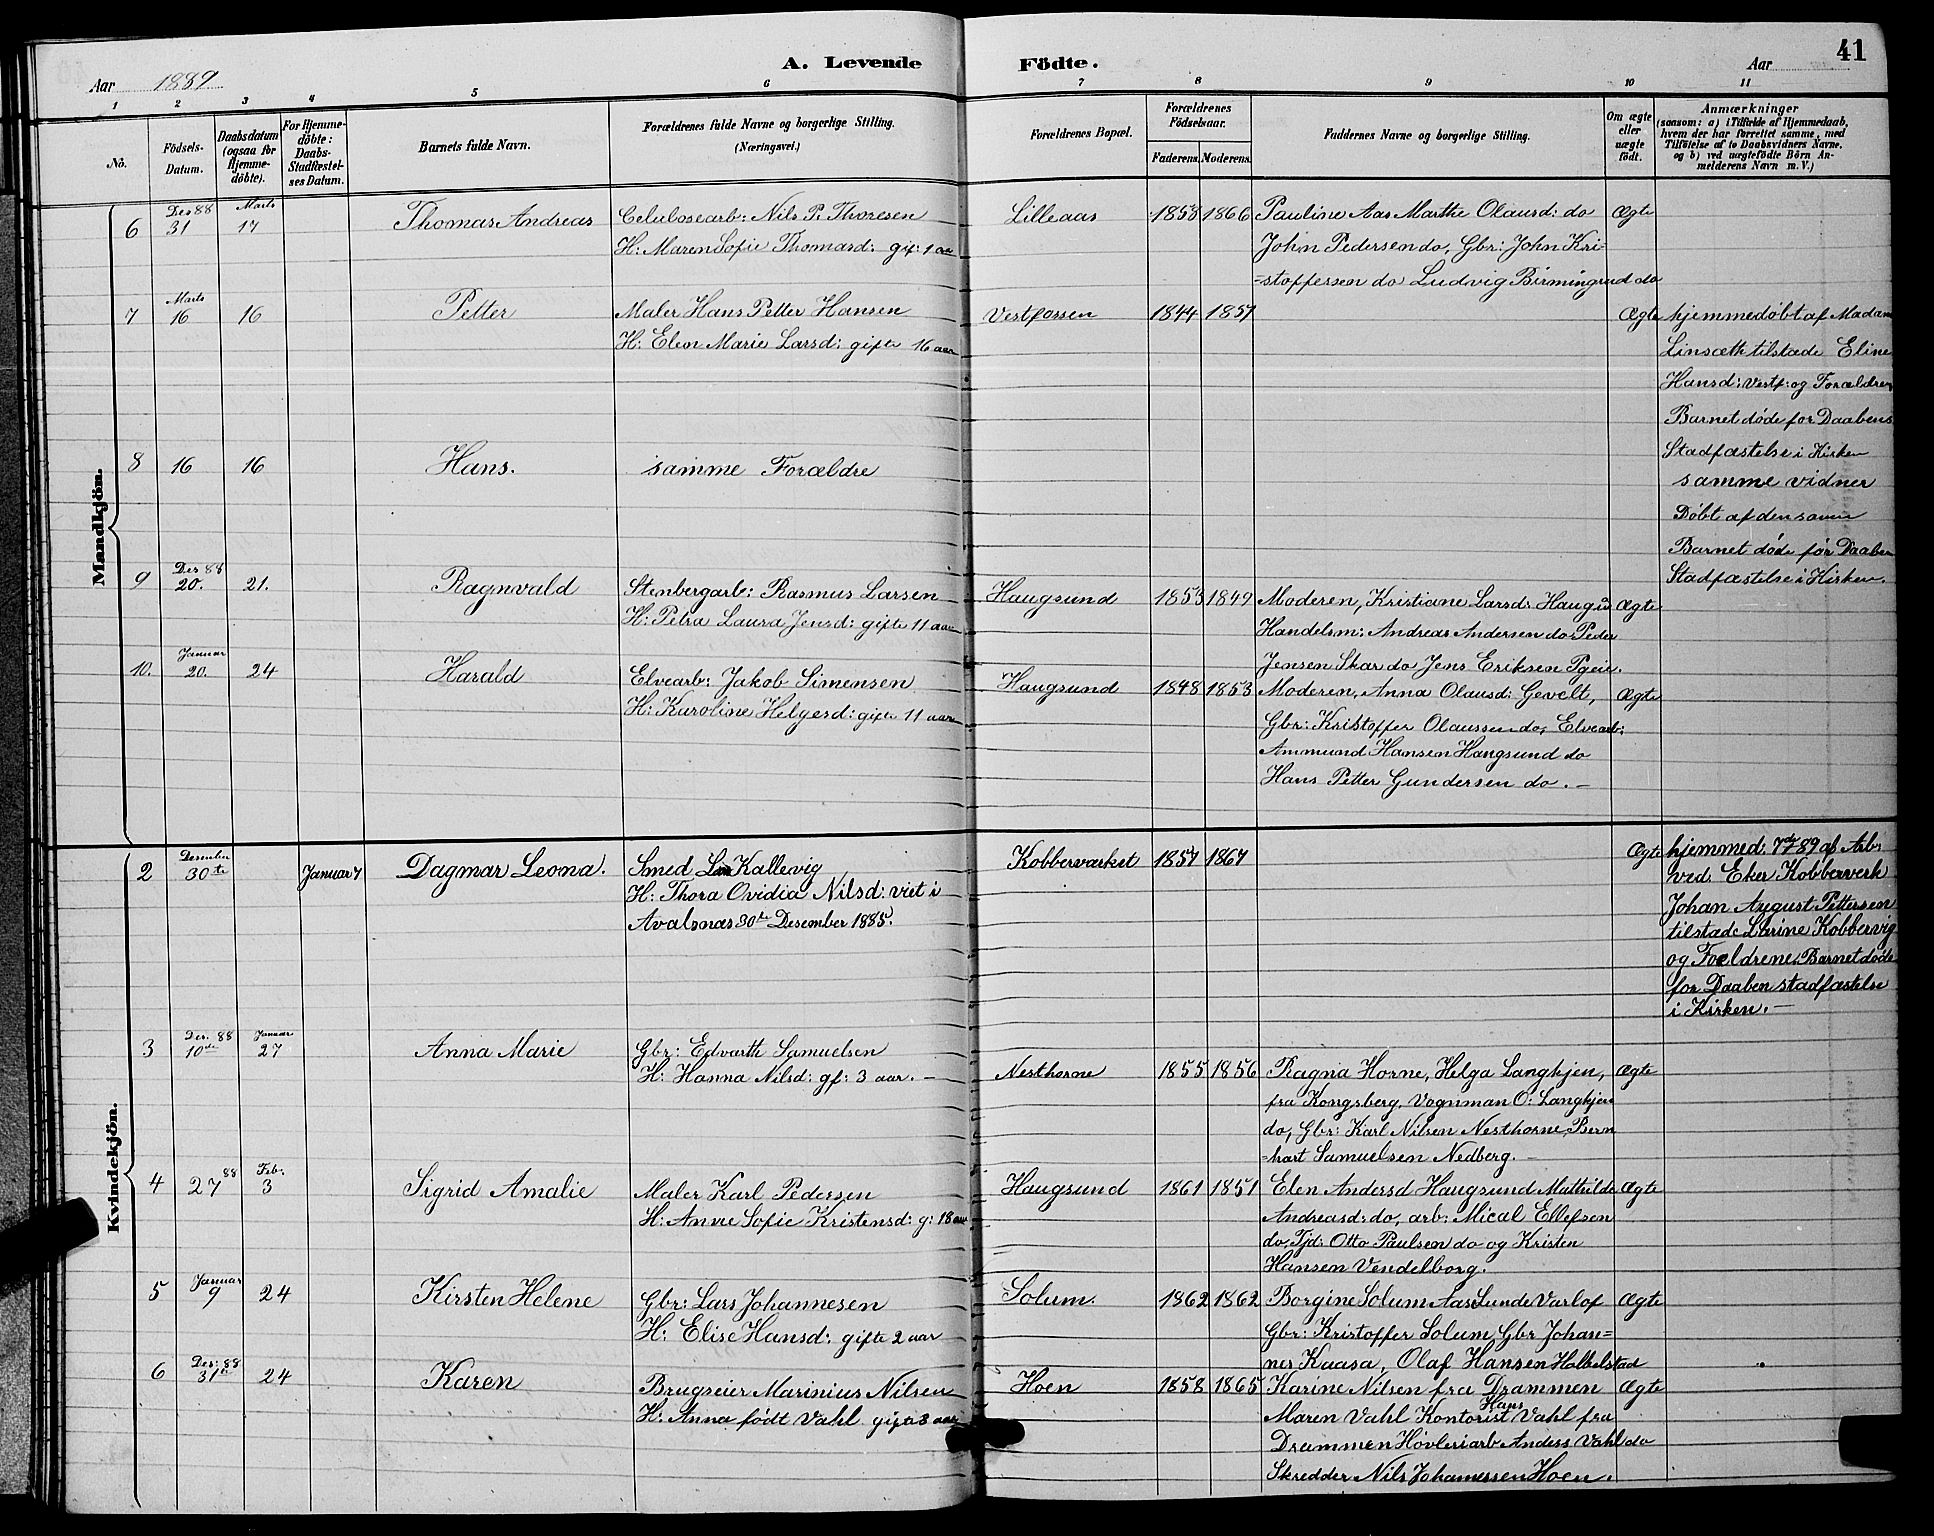 41
A. Levende Födte.
Aar 1889
Aar
1 2 3 4 5 6 7 8 9 10 11
No.
Födsels-Datum.
Daabsdatum (ogsaa for Hjemme-döbte).
For Hjemme-döbte: Daabs-Stadfæstel-ses Datum.
Barnets fulde Navn.
Forældrenes fulde Navne og borgerlige Stilling.
(Næringsvei.)
Forældrenes Bopæl.
Forældrenes Födselsaar.
Faderens. Moderens.
Faddernes Navne og borgerlige Stilling.
Om ægte eller uægte födt.
Anmærkninger
(saasom: a) i Tilfælde af Hjemmedaab,
hvem der har forrettet samme, med
Tilföielse af to Daabsvidners Navne,
og b) ved uægtefödte Börn An-
melderens Navn m. V.)
Mandkjön.
6 Des 88 31 Marts 17 Thomas Andreas Celulosearb: Nils P. Thoresen Lilleaas 1858 1866 Pauline Aas Marthe Olausd: do Ægte
H: Maren Sofie Thomasd: gif: 1 aar John Pedersen do, Gbr: John Kri=
=stoffersen do Ludvig Birmingrud do
7 Marts 16 16 Petter Maler Hans Petter Hansen Vestfossen 1844 1851 Ægte hjemmedøbt af Madam
H: Elen Marie Larsd: gifte 16 aar Linsæth tilstæde Eline
Hansd: Vestf: og Forældren
Barnet døde for Daabens
8 16 16 Hans. samme Forældre Stadfæstelse i Kirken
samme vidner
Døbt af den samme
Barnet døde før Daaben
9 Des 88 20. 21. Ragnvald Stenbergarb: Rasmus Larsen Haugsund 1853 1849 Moderen, Kristiane Larsd: Haugsu Ægte Stadfæstelse i Kirken.
H: Petra Laura Jensd: gifte 11 aar Handelsm: Andreas Andersen do Peder
Jensen Skar do Jens Eriksen
10. Januar 20. 24 Harald Elvearb: Jakob Simensen Haugsund 1848 1853 Moderen, Anna Olausd: Gevelt, Ægte
H: Karoline Helgesd: gifte 11 aar Gbr: Kristoffer Olaussen do, Elvearb:
Ammund Hansen Haugsund do
Hans Petter Gundersen do. –
Kvindekjön.
2 Desember 30te Januar 7 Dagmar Leona. Smed Kallevig Kobberværket 1857 1867 Ægte hjemmed. 7de 89 af Arb:
H: Thora Ovidia Nilsd: viet i ved Eker Kobberverk
Avalsnæs 30te Desember 1885. Johan August Pettersen
tilstæde Larine Kobbervig
og Foældrene. Barnet døde
for Daaben stadfæstelse
i Kirken. –
3 Des. 88 10de Januar 27 Anna Marie Gbr: Edvarth Samuelsen
H: Hanna Nilsd: gf: 3 aar. – Nesthorne 1855 1856 Ragna Horne, Helga Langkjen, Ægte
fra Kongsberg, Vognman O: Langkjen
do, Gbr: Karl Nilsen Nesthorne, Bern
=hart Samuelsen Nedberg. –
4 27 88 Feb: 3 Sigrid Amalie Maler Karl Pedersen Haugsund 1861 1851 Elen Andersd Haugsund Mathilde Ægte
H: Anne Sofie Kristensd: g: 18 aar Andreasd: do, arb: Mical Ellefsen
do, Tjd: Otto Paulsen do og Kristen
Hansen Vendelborg.
5 Januar 9 24 Kirsten Helene Gbr: Lars Johannesen Solum. 1862 1862 Borgine Solum Aas Lunde Varlof Ægte
H: Elise Hansd: gifte 2 aar Gbr: Kristoffer Solum Gbr Johan=
nes Kaasa, Olaf Hansen Halbelstad
6 Des: 88 31te 24 Karen Brugseier Marinius Nilsen Hoen 1858 1865 Karine Nilsen fra Drammen Ægte
H: Anna født Vahl gifte 3 aar Maren Vahl Kontorist Hans Vahl fra
Drammen Høvleriarb Anders Vahl do
Skredder Nils Johannessen Hoen.